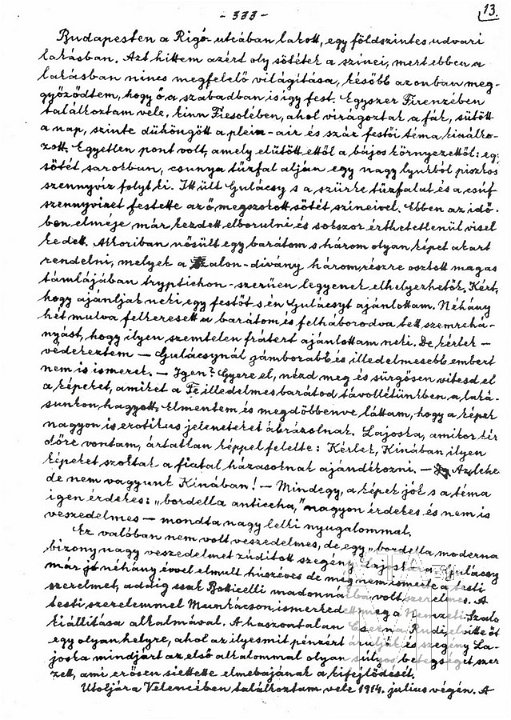 - 333 -
13.
Budapesten a Rigó utcában lakott, egy földszintes udvari
lakásban. Azt hittem azért oly sötétek a színei, mert ebben a
lakásban nincs megfelelő világítása, később azonban meg-
győződtem, hogy ő a szabadban is így fest. Egyszer Firenzében
találkoztam vele, kinn Fiesolében, ahol virágoztak a fák, sütött
a nap, szinte dühöngött a plein-air és száz festői téma kiaálko-
zott. Egyetlen pont volt, amely elütött ettől a bájos környezettől: egy
sötét sarokban, csunya tűzfal alján egy nagy lyukból piszkos
szennyvíz folyt ki. Itt ült Gulácsy s a szürke tűzfalat és a csúf
szennyvizet festette az ő megszokott sötét színeivel. Ebben az idő-
ben elméje már kezdett elborulni és sokszor érthetetlenül visel
kedett. Akkoriban nősült egy barátom s három olyan képet akart
rendelni, melyek a szalon-divány három részre osztott magas
támlájában tryptichon-szerűen legyenek elhelyezhetők. Kért,
hogy ajánljak neki egy festőt s én Gulácsyt ajánlottam. Néhány
hét mulva felkeresett a barátom és felháborodva tett szemrehá-
nyást, hogy ilyen szemtelen frátert ajánlottam neki. De kérlek —
védekeztem — Gulácsynál jámborabb és illedelmesebb embert
nem is ismerek. — Igen? Gyere el, nézd meg és sürgősen vitesd el
a képeket, amiket a Te illedelmes barátod távollétünkben a laká-
sunkon hagyott. Elmentem és megdöbbenve láttam, hogy a képek
nagyon is erotikus jeleneteket ábrázolnak. Lajoska, amikor kér
dőre vontam, ártatlan képpel felelte: Kérlek, Kinában ilyen
képeket szoktak a fiatal házasoknak ajándékozni. — Azt lehet
de nem vagyunk Kinában! — Mindegy, a képek jók s a téma
igen érdekes: "bordella anticcha," nagyon érdekes és nem is
veszedelmes — mondta nagy lelki nyugalommal.
Ez valóban nem volt veszedelmes, de egy "bordella moderna
bizony nagy veszedelmet zúdított szegény Lajoskára. Gulácsy
már jó néhány évvel elmult húszéves de még nem ismerte a testi
szerelmet, addig csak Botticelli madonnáiba volt szerelmes. A
testi szerelemmel Munkácson ismerkedett meg a Nemzeti Szalon
kiállitása alkalmával. A haszontalan Cserna Rudi, elvitte őt
egy olyan helyre, ahol az ilyesmit pénzért árulják és szegény La-
joska mindjárt az első alkalommal olyan súlyos betegséget szer
zett, ami erősen siettette elmebajának a kifejlődését.
Utoljára Velencében találkoztam vele 1914. julius végén. A